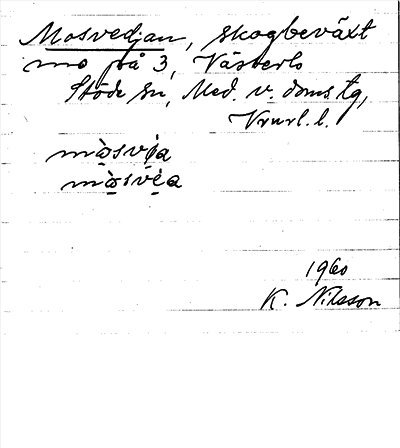 Mosvedjan, skogbeväxt
mo på 3, Västerlo
Stöde sn, Med. v. doms tg,
Vnrl. l.
mo̠̊̀svi̠a
mo̠̊̀sve̠̊a
1960
K. Nilsson